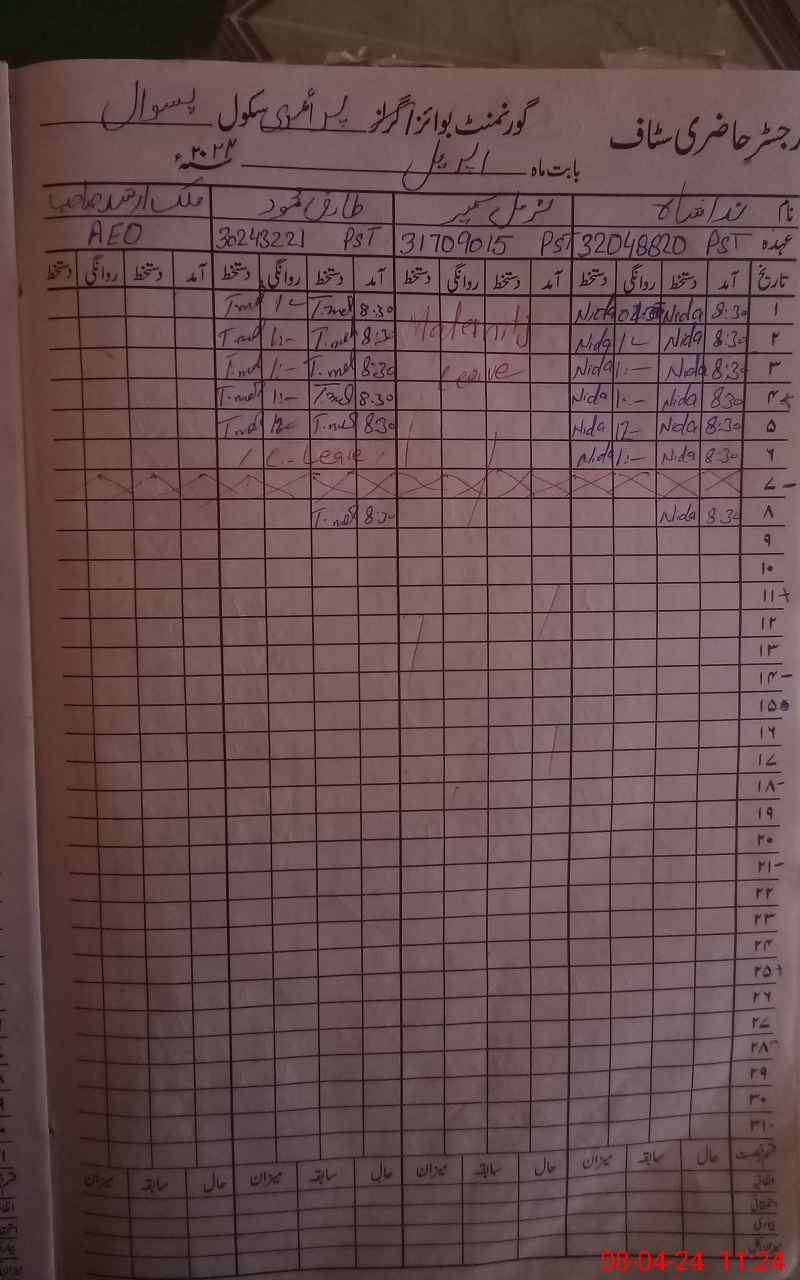 رجسٹر حاضری سٹاف گورنمنٹ بوائز/گرلز پرائمری سکول پسوال
بابت ماہ اپریل ۲۰۲۴ء
نام ندا شاہ طارق محمود ملک ارشد صاحب
عہدہ 32048820 PST 31709015 PST 30243221 PST AEO
تاریخ آمد دستخط روانگی دستخط آمد دستخط روانگی دستخط آمد دستخط روانگی دستخط آمد دستخط روانگی دستخط
۱ 8:30 Nida Nida Maternity 8:30 T.mel 1:- T.mel
۲ 8:30 Nida 1:- Nida 8:30 T.mel 1:- T.mel
۳ 8:30 Nida 1:- Nida Leave 8:30 T.mel 1:- T.mel
۴ 8:30 Nida 1:- Nida 8:30 T.mel 1:- T.mel
۵ 8:30 Nida 12- Nida 8:30 T.mel 12- T.mel
۶ 8:30 Nida 1:- Nida C-Leave
۷ -
۸ 8:30 Nida 8:30 T.mel
۹
۱۰
۱۱
۱۲
۱۳
۱۴ -
۱۵
۱۶
۱۷
۱۸ -
۱۹
۲۰
۲۱ -
۲۲
۲۳
۲۴
۲۵
۲۶
۲۷
۲۸
۲۹
۳۰
۳۱
قسم رخصت حال سابقہ میزان حال سابقہ میزان حال سابقہ میزان حال سابقہ میزان
اتفاقی
استحقاقی
بیماری
08-04-24 11:24